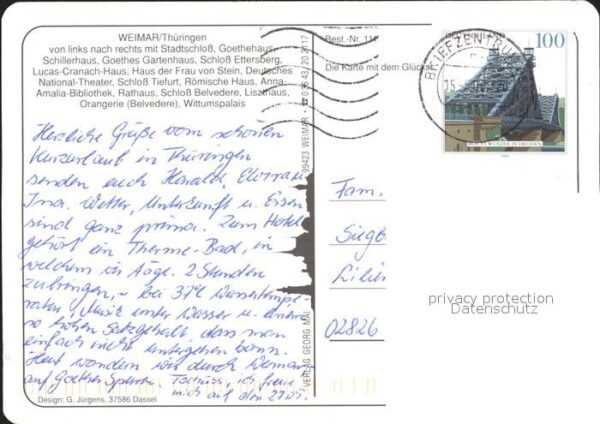 WEIMAR/Thüringen
von links nach rechts mit Stadtschloß, Goethehaus,
Schillerhaus, Goethes Gartenhaus, Schloß Ettersberg,
Lucas-Cranach-Haus, Haus der Frau von Stein, Deutsches
National-Theater, Schloß Tiefurt, Römische Haus, Anna
Amalia-Bibliothek, Rathaus, Schloß Belvedere, Liszthaus,
Orangerie (Belvedere), Wittumspalais
Herzliche Grüße vom schönen
Kurzurlaub in Thüringen
senden euch Harald,
Ina. Wetter, Unterkunft u. Essen
sind ganz prima. Zum Hotel
gehört ein Therme-Bad, in
welchem wir tägl. 2 Stunden
zubringen, - bei 37°C Wassertempe-
ratur, Musik unter Wasser u. einem
so hohen Salzgehalt, dass man
einfach nicht untergehen kann.
Heut wandern wir durch Weimar
auf Goethes Spuren. Tschüss, ich freue
mich auf den 27.05.
Design: G. Jürgens, 37586 Dassel
VERLAG GEORG MAI
99423 WEIMAR
Best.-Nr. 11
Die Karte mit dem Glücks
BRIEFZENTRUM
100
BLAUES WUNDER IN DRESDEN
Fam.
Siegb
Lilien
02826
privacy protection
Datenschutz